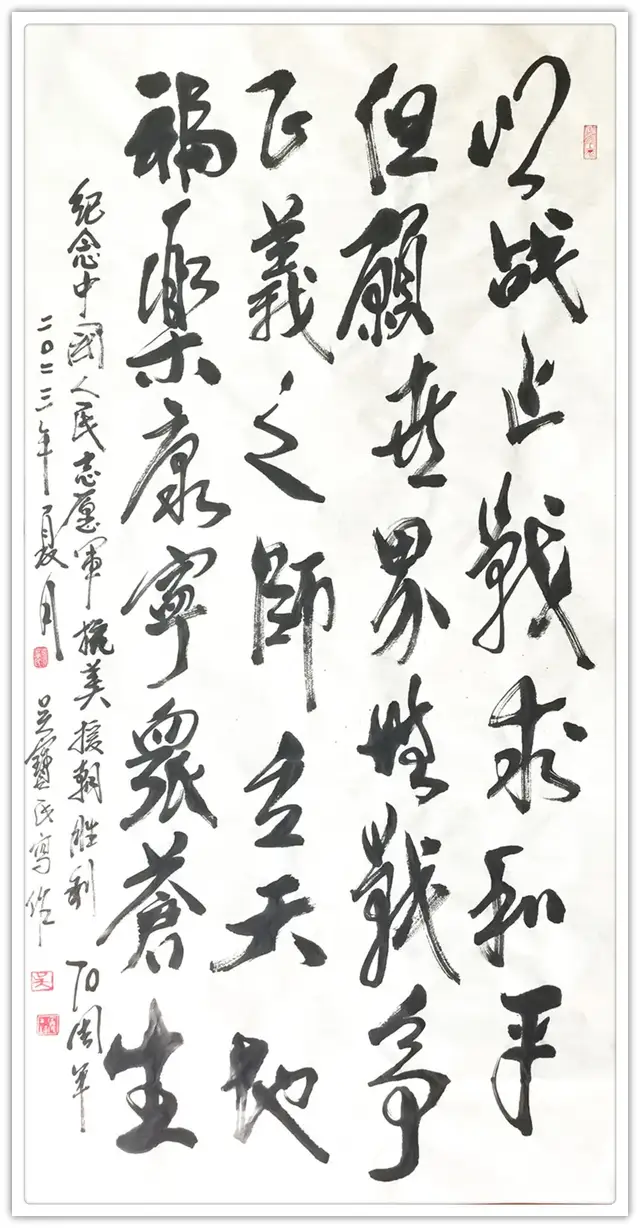 以战止戰求和平
但願世界無戰爭
正義之師立天地
福樂康寧眾蒼生
纪念中國人民志愿軍抗美援朝胜利70周年
二〇二三年夏月 吴寶民寫作
吴